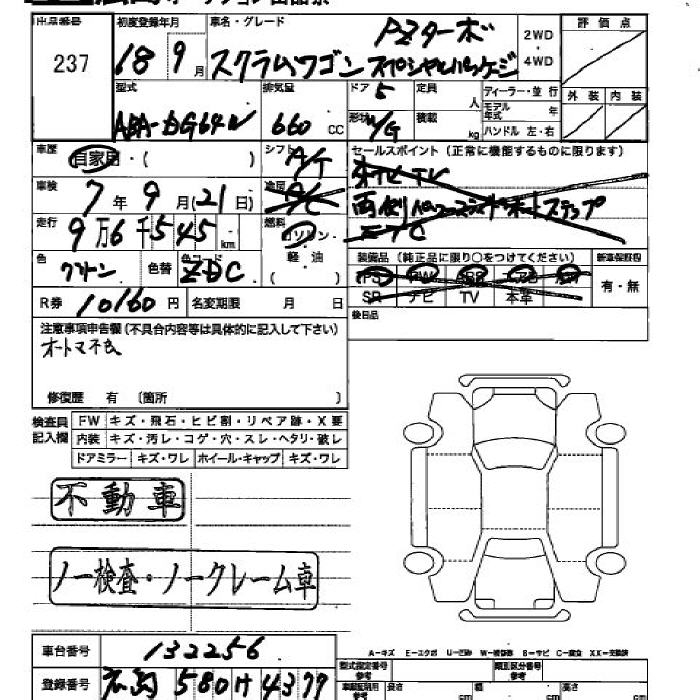 出品番号 237
初度登録年月 18 9月
車名・グレード PZターボ
スクラムワゴン スペシャルパッケージ
2WD
・
4WD
評価点
外装 内装
型式 ABA-DG64W
排気量 660 CC
ドア 5
形状 V/G
定員 人
積載 kg
ディーラー・並行
モデル年式 年
ハンドル 左・右
車歴 自家用・( )
シフト A/T
セールスポイント(正常に機能するものに限ります)
車検 7年9月(21日)
冷房 A/C
走行 9万6千545km
燃料 ガソリン・
軽油
( )
色
色替
色コード ZDC
装備品(純正品に限り○をつけてください)
新車保証書
有・無
PS PW
SR ナビ TV 本革
R券 10160円
名変期限 月 日
後日品
注意事項申告欄(不具合内容等は具体的に記入して下さい)
オートマ不良
修復歴 有 〔箇所 〕
検査員記入欄
FW キズ・飛石・ヒビ割・リペア跡・X要
内装 キズ・汚レ・コゲ・穴・スレ・ヘタリ・破レ
ドアミラー キズ・ワレ ホイール・キャップ キズ・ワレ
不動車
ノー検査・ノークレーム車
A-キズ E-エクボ U-凹み W-補修跡 B-サビ C-腐食 XX-交換済
車台番号 132256
型式指定番号 参考
類別区分番号 参考
登録番号 580 4377
長さ cm
幅 cm
高さ cm